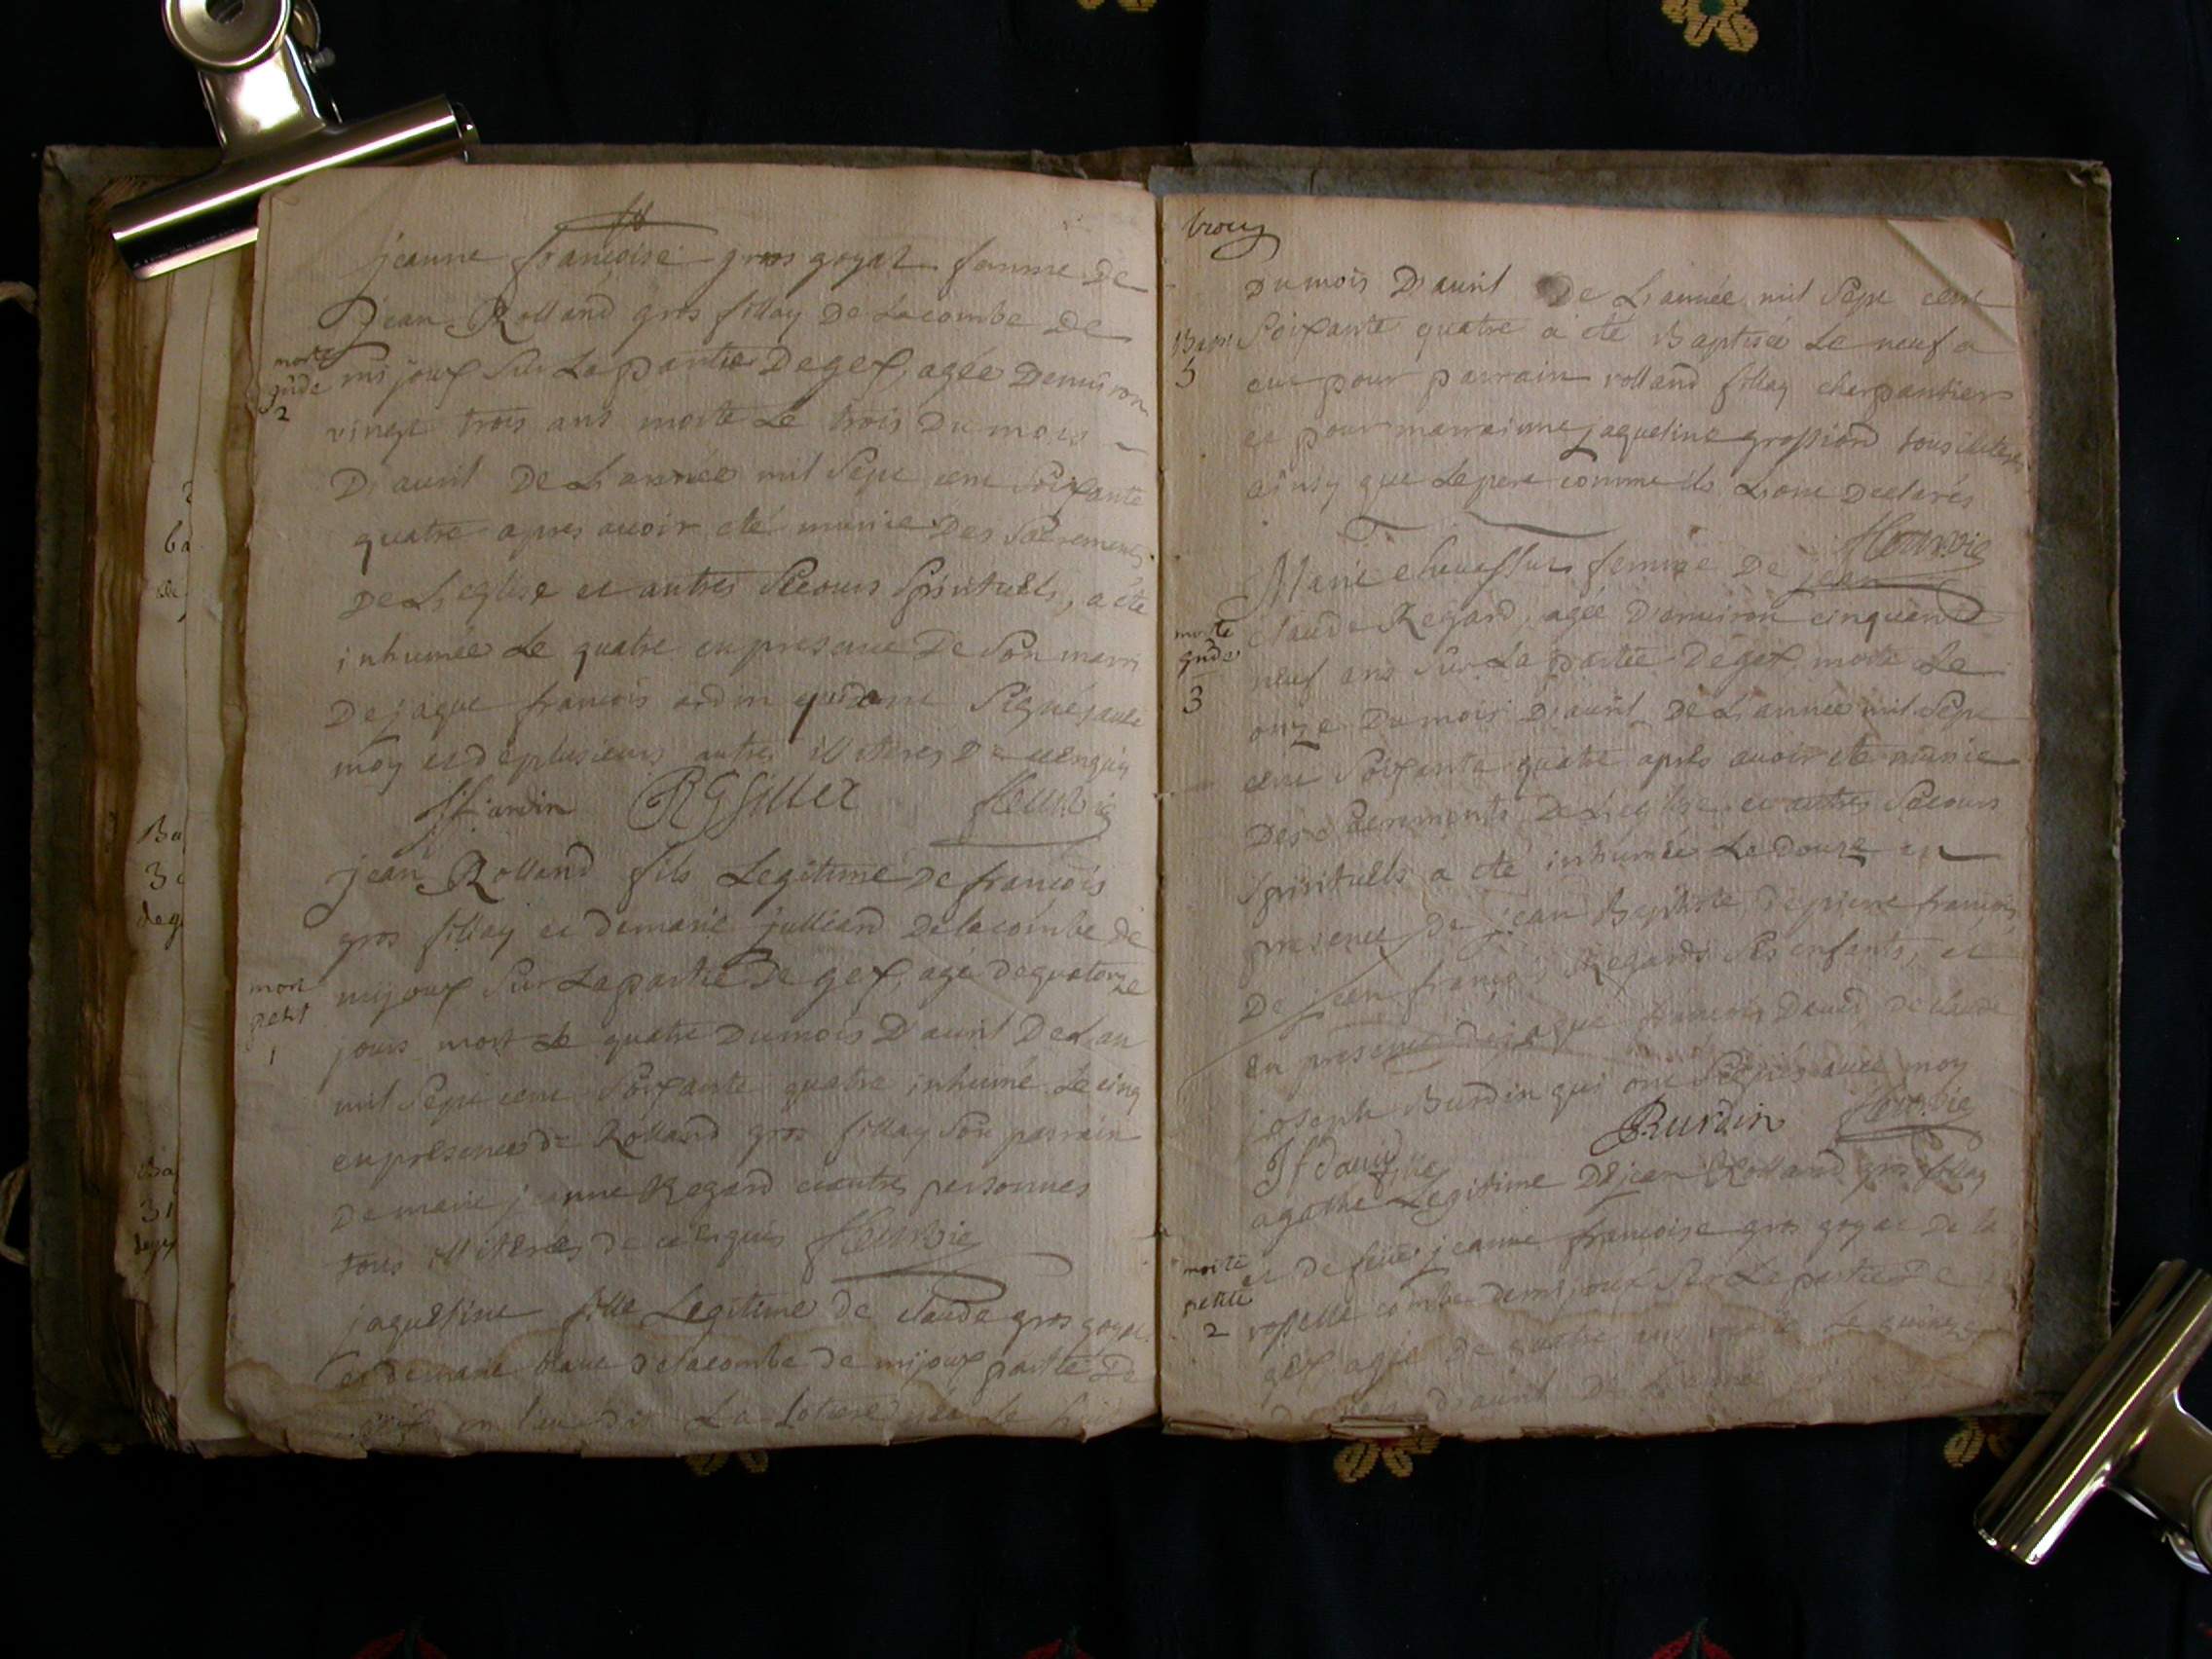 jeanne francoise gros goyat femme de
jean Rolland gros fillay de lacombe de
morte
grde
2
mijoux sur la partie de gex, agée denviron
vingt trois ans morte le trois du mois
d'avril de l'année mil sept cent soixante
quatre apres avoir eté munie des sacrements
de l'eglise et autres secours spirituels, a eté
inhumée le quatre en presence de son marri
de jaque francois
moy et de plusieurs autres illiterés de ce enquis
RGfillex
jean Rolland fils legitime de francois
gros fillay et de marie julliard de lacombe de
mort
petit
1
mijoux sur la partie de gex, agé de quatorze
jours mort le quatre du mois d'avril de l'an
mil sept cent soixante quatre inhumé le cinq
en presence de Rolland gros fillay son parrain
de marie jeanne Regard et autres personnes
tous illiterés de ce enquis
jaqueline fille legitime de claude gros goyat
et de marie blanc de lacombe de mijoux partie de
gex en lieu dit la née le huit
du mois d'avril de l'année mil sept cent
Bapt
5
soixante quatre a eté baptisée le neuf a
eut pour parrain rolland fillay cherpantier
et pour marraine jaqueline grossiord tous
ainsy que le pere comme ils l'ont declarés
Marie femme de jean
morte
grde
3
claude Regard, agée d'anviron cinquante
neuf ans sur la partie de gex, morte le
onze du mois d'avril de l'année mil sept
cent soixante quatre après avoir eté munie
des sacrements de l'eglise et autres secours
spirituels a eté inhumée le douze en
presence de jean Baptiste, de pierre francois
de jean francois Regards ses enfants, et
en presence de jaque francois david, de claude
joseph Burdin qui ont signés avec moy
Burdin
Jf david
fille
agathe legitime de jean Rolland gros fillay
et de feüe jeanne francoise gros goyat de la
morte
petite
2
combe de mijoux sur la partie de
gex agée de quatre ans morte le quinze
du mois d'avril de l'année